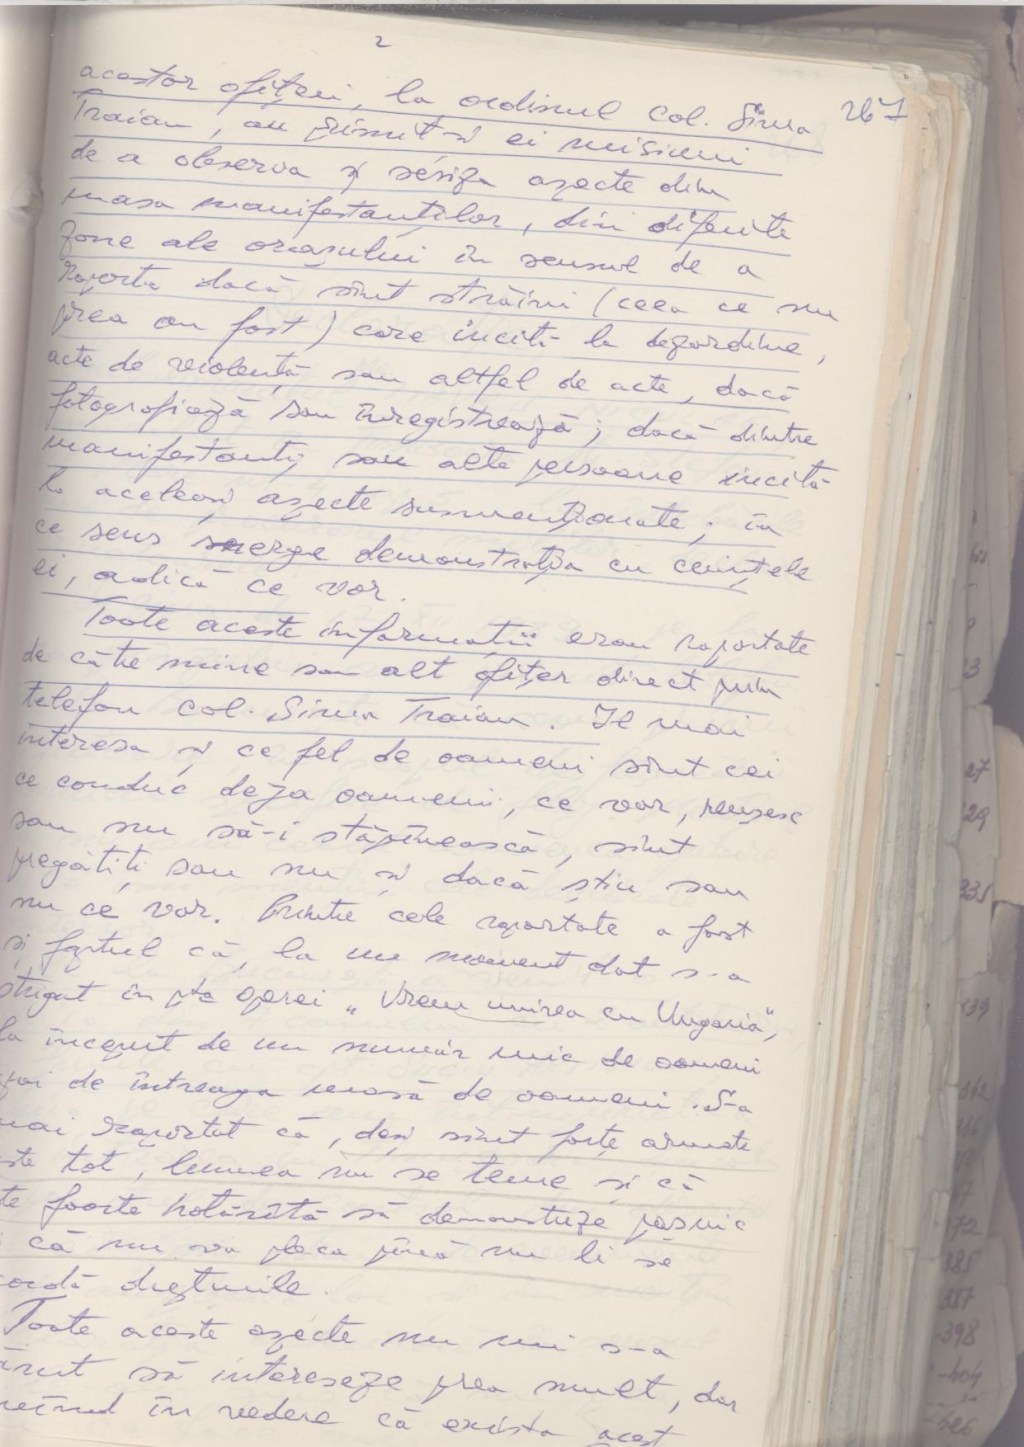 2
267
acestor ofițeri, la ordinul col. Sima
Traian, au primit și ei misiuni
de a observa și sesiza aspecte din
masa manifestanților, din diferite
zone ale orașului în sensul de a
raporta dacă sînt străini (ceea ce nu
prea au fost) care incită la dezordine,
acte de violență sau altfel de acte, dacă
fotografiază sau înregistrează; dacă dintre
manifestanți sau alte persoane incită
la aceleași aspecte susmenționate; în
ce sens merge demonstrația cu cerințele
ei, adică ce vor.
Toate aceste informații erau raportate
de către mine sau alt ofițer direct prin
telefon col. Sima Traian. Îl mai
interesa și ce fel de oameni sînt cei
ce conduc deja oamenii, ce vor, reușesc
sau nu să-i stăpînească, sînt
pregătiți sau nu și dacă știu sau
nu ce vor. Printre cele raportate a fost
și faptul că, la un moment dat s-a
strigat în pța operei „Vrem unirea cu Ungaria",
la început de un număr mic de oameni
apoi de întreaga masă de oameni. S-a
mai raportat că, deși sînt forțe armate
ste tot, lumea nu se teme și că
te foarte hotărîtă să demonstreze pașnic
că nu va pleca pînă nu li se
cordă drepturile.
Toate aceste aspecte nu mi s-a
părut să intereseze prea mult, dar
ținînd în vedere că exista acest
27
29
235
139
342
72
385
387
398
404